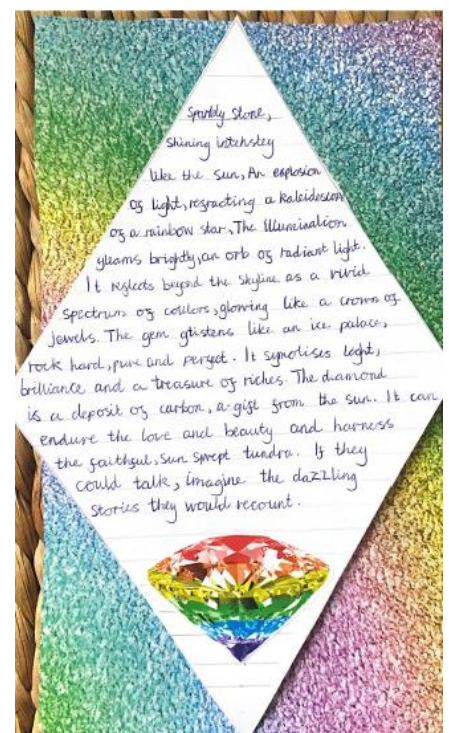 Sparkly Stone,
Shining intehstey
like the sun, An explosion
of light, refracting a kaleidescion
of a rainbow star, The Illumination
gleams brightly, an orb of radiant light.
It reflects beyond the skyline as a vivid
spectrum of coulors, glowing like a crown of
jewels. The gem glistens like an ice palace,
rock hard, pure and perfect. It symolises light,
brilliance and a treasure of riches. The diamond
is a deposit of carbon, a gift from the sun. It can
endure the love and beauty and harness
the faithful, sun swept tundra. If they
could talk, imagine the dazzling
stories they would recount.